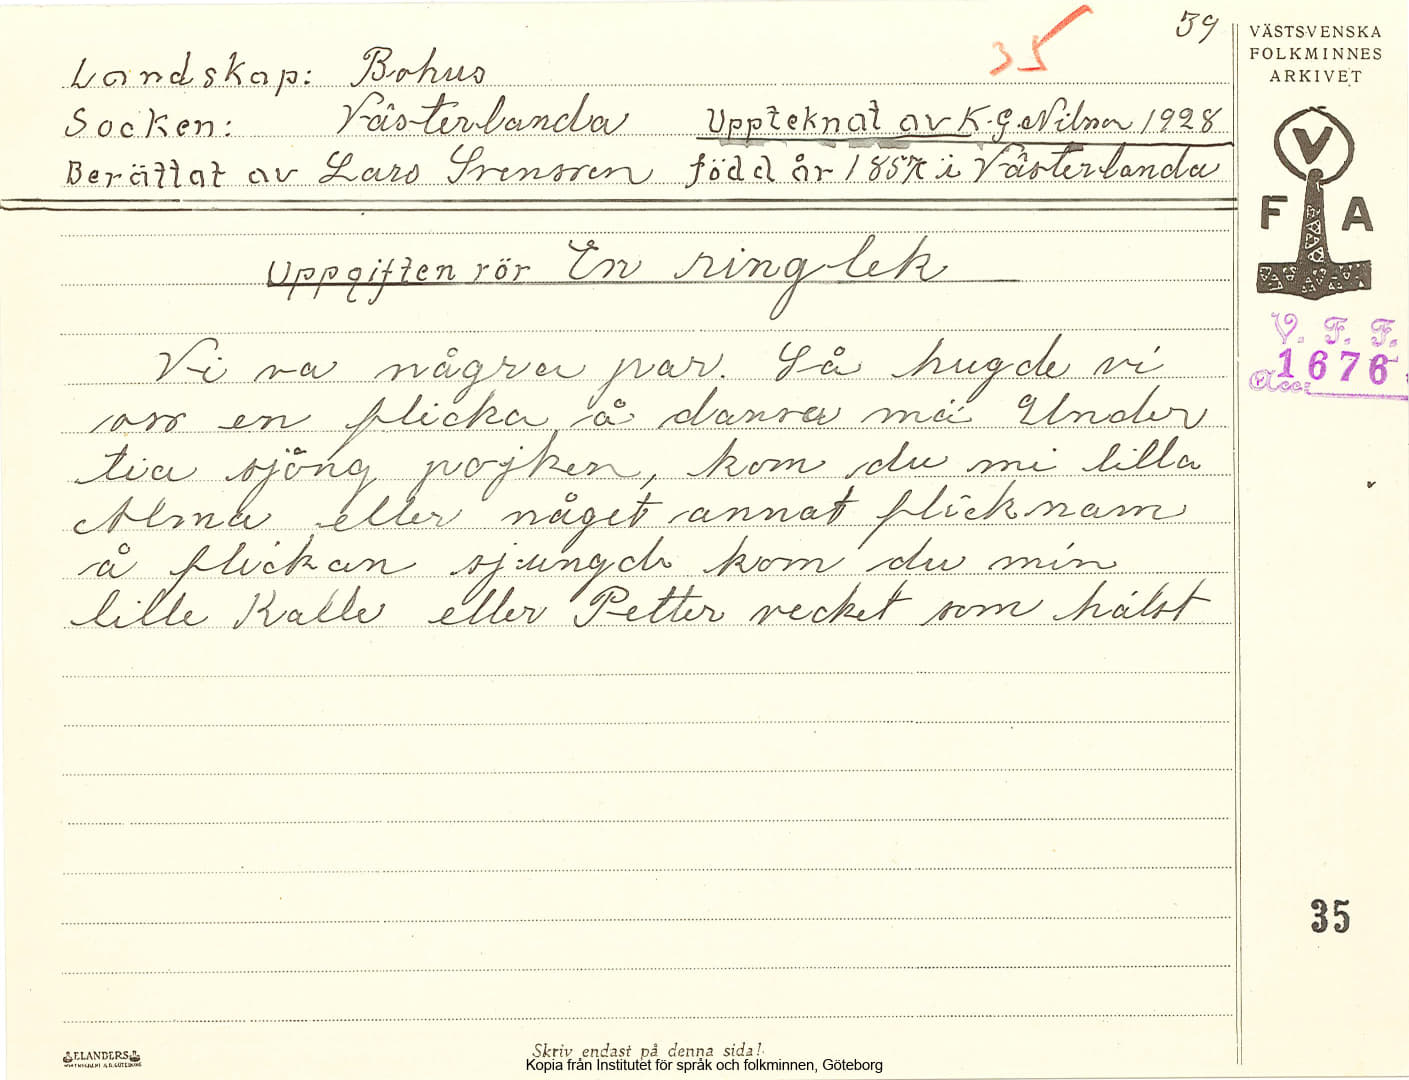 39
35
VÄSTSVENSKA
FOLKMINNES
ARKIVET
Landskap: Bohus
Socken: Västerlanda Upptecknat av K.G. Nilson 1928
Berättat av Lars Svensson född år 185 i Västerlanda
V
F A
Uppgiften rör En ringlek
V. F. F.
Acc: 1676
Vi va några par. Så hugde vi
oss en flicka å dansa mä Under
tia sjöng pojken, kom du mi lilla
Alma eller något annat flicknam
å flickan sjungde kom du min
lille Kalle eller Petter vecket som hälst
35
ELANDERS
Skriv endast på denna sida!
Kopia från Institutet för språk och folkminnen, Göteborg